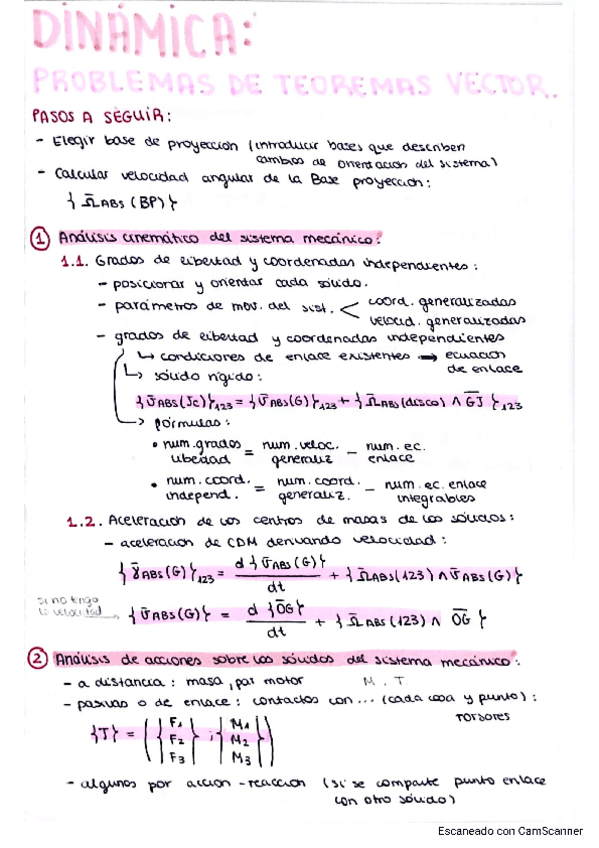 DINÁMICA:
PROBLEMAS DE TEOREMAS VECTOR.
PASOS A SEGUIR:
- Elegir base de proyección (introducir bases que describen
cambios de orientación del sistema)
- Calcular velocidad angular de la Base proyección:
{ Ω̄ABS (BP) }
① Análisis cinemático del sistema mecánico:
1.1. Grados de libertad y coordenadas independientes:
- posicionar y orientar cada sólido.
- parámetros de mov. del sist. < coord. generalizadas
velocid. generalizadas
- grados de libertad y coordenadas independientes
↳ condiciones de enlace existentes → ecuación
de enlace
↳ sólido rígido:
{ῡABS(Jc)}123 = {ῡABS(G)}123 + {Ω̄ABS(disco) ∧ GJ̄ }123
→ fórmulas:
• num. grados libertad = num. veloc. generaliz - num. ec. enlace
• num. coord. independ. = num. coord. generaliz. - num. ec. enlace integrables
1.2. Aceleración de los centros de masas de los sólidos:
- aceleración de CDM derivando velocidad:
{ γ̄ABS(G) }123 = d {ῡABS(G)} / dt + {Ω̄ABS(123) ∧ ῡABS(G)}
si no tngo
la velocidad → {ῡABS(G)} = d {OḠ} / dt + { Ω̄ABS(123) ∧ OḠ }
② Análisis de acciones sobre los sólidos del sistema mecánico:
- a distancia: masa, par motor M. T
- pasivas o de enlace: contactos con... (cada cosa y punto):
torsores
{T} = ( { F1 F2 F3 } ; { M1 M2 M3 } )
- algunos por acción-reacción (si se comparte punto enlace
con otro sólido)
Escaneado con CamScanner